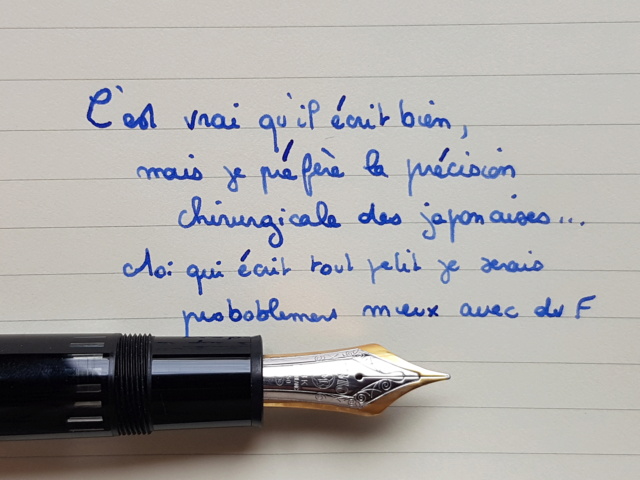 C'est vrai qu'il écrit bien,
mais je préfère la précision
chirurgicale des japonaises...
Moi qui écrit tout petit je serais
probablement mieux avec du F